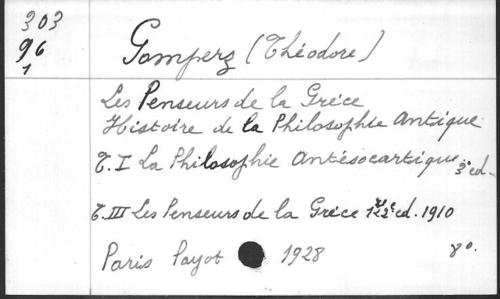 303
96
1
Gomperz (Théodore)
Les Penseurs de la Grèce
Histoire de la Philosophie Antique
T.I La Philosophie Antésocratique 3e ed.
T.III Les Penseurs de la Grèce 1re 2e ed. 1910
Paris Payot 1928 8º.